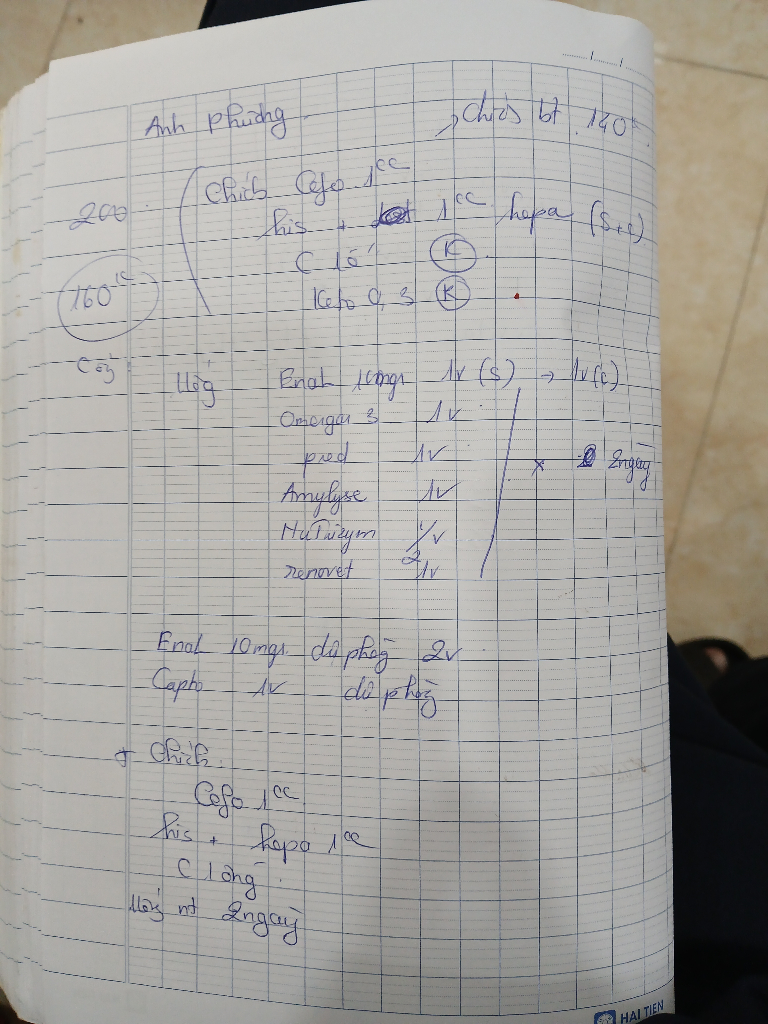 Anh Phương → Chích bt 140k
200 Chích Cefo 1cc
his + 1cc hepa (S+C)
C 1ố (K)
160k Kefo 0,3 (K)
Còn:
Uống Enal 10mgr 1v (S) → 1v (C)
Omega 3 1v
pred 1v × 2ngày
Amylyse 1v
HuTrizym 1/2v
Renovet 1v
Enal 10mgr dự phòng 2v
Capto 1v dự phòng
+ Chích:
Cefo 1cc
his + hepa 1cc
C 1 ống
Uống nt 2ngày
HẢI TIẾN